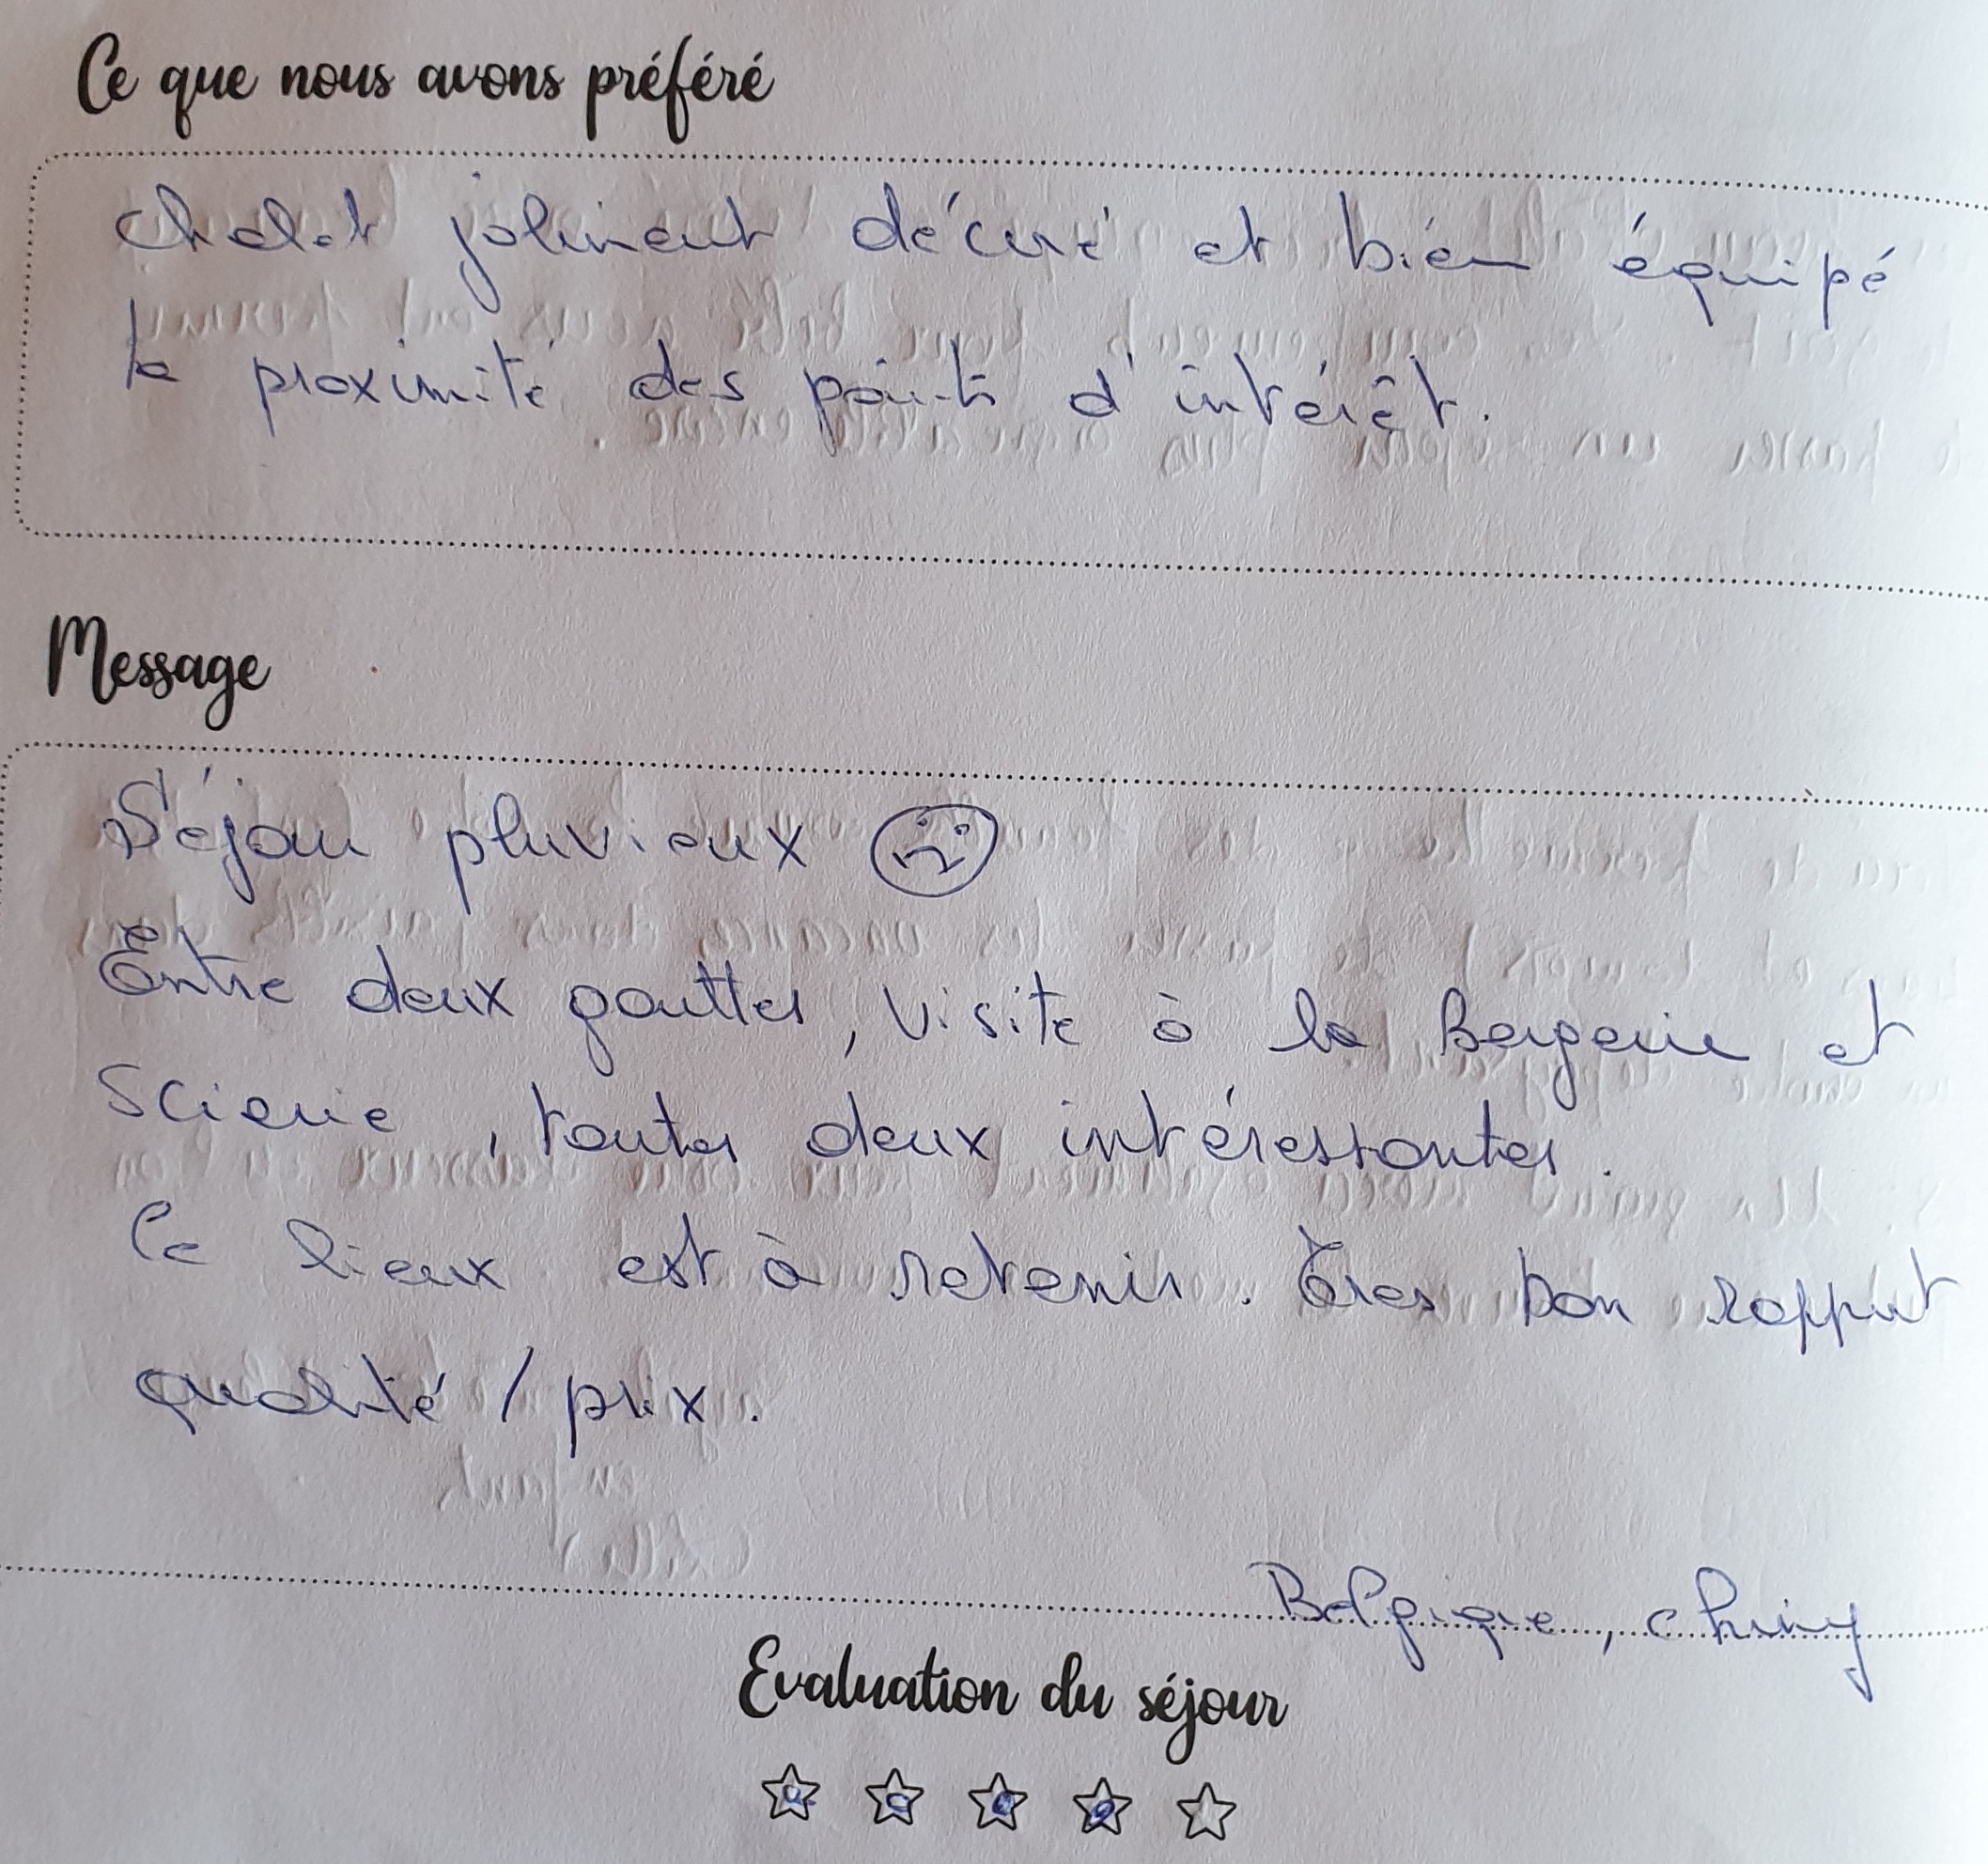 Ce que nous avons préféré
Chalet joliment décoré et bien équipé
la proximité des points d'intérêt.
Message
Séjour pluvieux
Entre deux gouttes, visite à la Bergerie et
Scierie, toutes deux intéressantes.
Ce lieux est à retenir. Très bon rapport
qualité / prix.
Belgique, Chiny
Evaluation du séjour